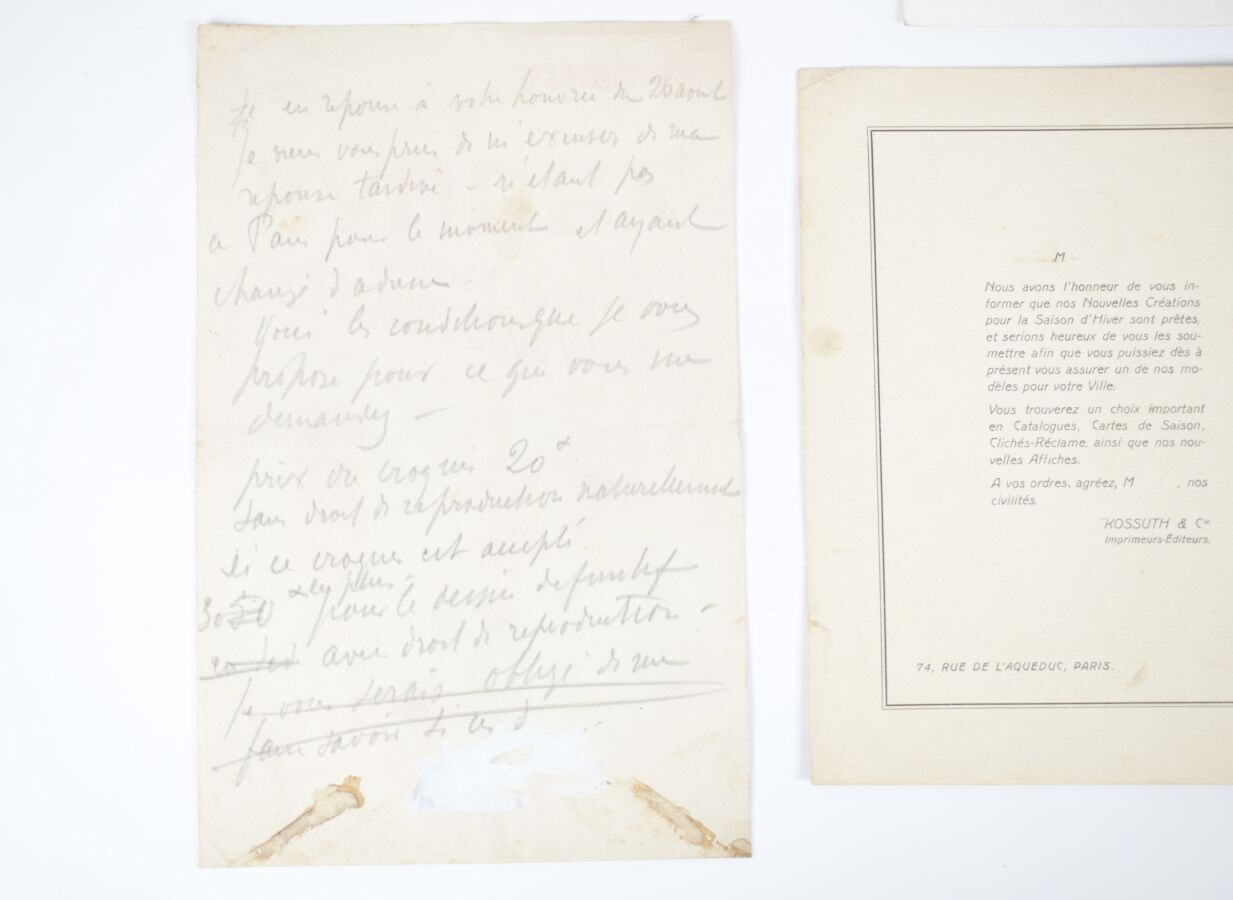 en reponse à votre honorée du 26 aout
Je viens vous prier de m'excuser de ma
reponse tardive – n'etant pas
a Paris pour le moment et ayant
changé d'adresse –
Voici les conditions que je vous
propose pour ce que vous me
demandez –
prix du croquis 20
sans droit de reproduction naturellement
si ce croquis est accepté
en plus
30 50 pour le dessin definitif
avec droit de reproduction –
Je vous serais obligé de me
faire savoir si ces d
M
Nous avons l'honneur de vous in-
former que nos Nouvelles Créations
pour la Saison d'Hiver sont prêtes,
et serions heureux de vous les sou-
mettre afin que vous puissiez dès à
présent vous assurer un de nos mo-
dèles pour votre Ville.
Vous trouverez un choix important
en Catalogues, Cartes de Saison,
Clichés-Réclame, ainsi que nos nou-
velles Affiches.
A vos ordres, agréez, M , nos
civilités.
KOSSUTH & Cie
Imprimeurs-Éditeurs.
74, RUE DE L'AQUEDUC, PARIS.